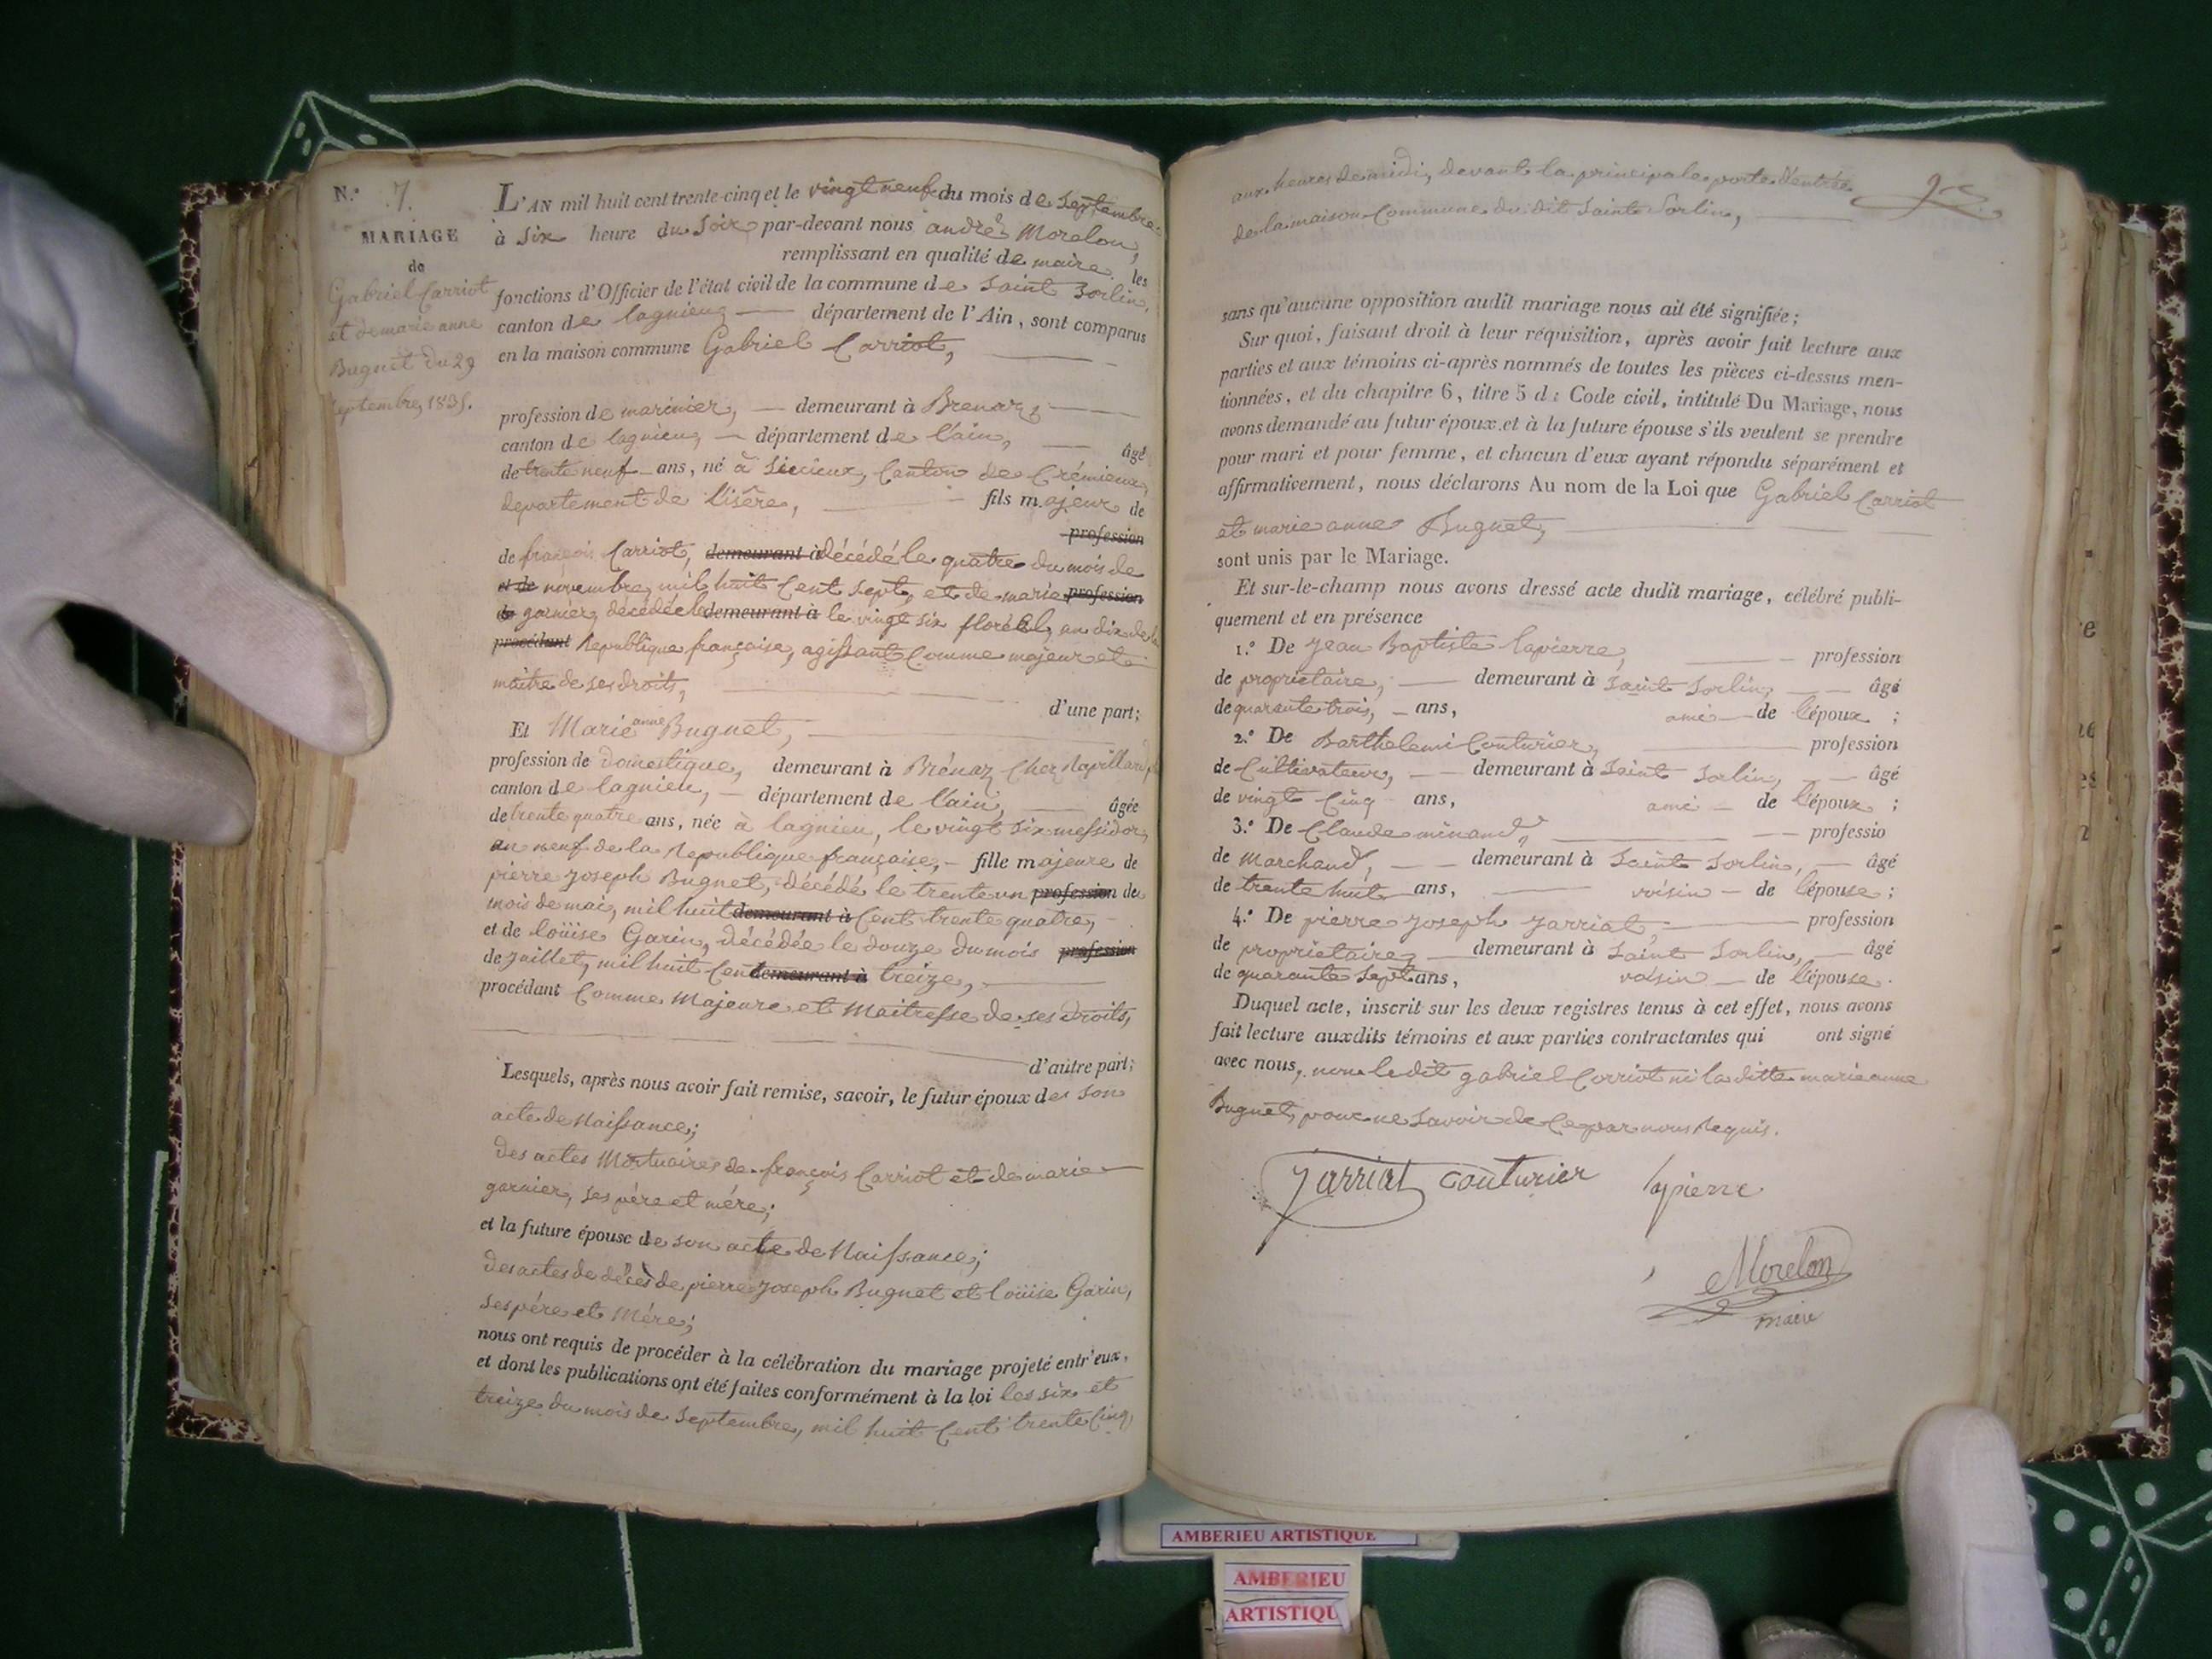 N.° 7.
MARIAGE
de
Gabriel Carriot
et de marie anne
Buguet du 29
septembre, 1835.
L'AN mil huit cent trente-cinq et le vingt neuf du mois de Septembre
à six heure du Soir par-devant nous andré Morelon,
remplissant en qualité de maire les
fonctions d'Officier de l'état civil de la commune de Saint Sorlin,
canton de lagnieu — département de l'Ain, sont comparus
en la maison commune Gabriel Carriot,
profession de marinier, — demeurant à Brenaz
canton de lagnieu, — département de l'ain, — âgé
de trente neuf ans, né à Siccieux, Canton de Crémieux,
departement de l'isère, — fils majeur de
profession
de françois Carriot, demeurant à décédé le quatre du mois de
et de novembre, mil huit Cent sept, et de marie profession
de garnier, décédée le demeurant à le vingt six floréal, an dix de la
procédant République française, agissant Comme majeur et
maitre de ses droits,
d'une part;
Et Marie anne Buguet,
profession de domestique, demeurant à Brénaz Chez
canton de lagnieu, — département de l'ain, — âgée
de trente quatre ans, née à lagnieu, le vingt six messidor,
an neuf de la République française, — fille majeure de
pierre Joseph Buguet, décédé le trente un profession du
mois de mai, mil huit demeurant à Cent trente quatre,
et de loüise Garin, décédée le douze du mois profession
de Juillet, mil huit Cent demeurant à treize,
procédant Comme Majeure et Maitresse de ses droits,
d'autre part;
Lesquels, après nous avoir fait remise, savoir, le futur époux de son
acte de Naissance;
des actes Mortuaires de françois Carriot et de marie
garnier, ses père et mére;
et la future épouse de son acte de Naissance;
des actes de décès de pierre Joseph Buguet et loüise Garin,
ses père et Mére;
nous ont requis de procéder à la célébration du mariage projeté entr'eux,
et dont les publications ont été faites conformément à la loi les six et
treize du mois de Septembre, mil huit Cent trente Cinq,
aux heures de midi, devant la principale porte d'entrée
de la maison Commune du dit Saint Sorlin,
sans qu'aucune opposition audit mariage nous ait été signifiée;
Sur quoi, faisant droit à leur réquisition, après avoir fait lecture aux
parties et aux témoins ci-après nommés de toutes les pièces ci-dessus men-
tionnées, et du chapitre 6, titre 5 du Code civil, intitulé Du Mariage, nous
avons demandé au futur époux et à la future épouse s'ils veulent se prendre
pour mari et pour femme, et chacun d'eux ayant répondu séparément et
affirmativement, nous déclarons Au nom de la Loi que Gabriel Carriot
et marie anne Buguet,
sont unis par le Mariage.
Et sur-le-champ nous avons dressé acte dudit mariage, célébré publi-
quement et en présence
1.° De Jean Baptiste lapierre, — profession
de propriétaire, — demeurant à Saint Sorlin, — âgé
de quarante trois, ans, ami — de l'époux ;
2.° De Barthelemi Couturier, — profession
de Cultivateur, — demeurant à Saint Sorlin, — âgé
de vingt Cinq ans, ami — de l'époux ;
3.° De Claude minand, — professio
de Marchand, — demeurant à Saint Sorlin, — âgé
de trente huit ans, — voisin — de l'épouse ;
4.° De pierre Joseph Jarriat, — profession
de propriétaire, — demeurant à Saint Sorlin, — âgé
de quarante Sept ans, voisin — de l'épouse.
Duquel acte, inscrit sur les deux registres tenus à cet effet, nous avons
fait lecture auxdits témoins et aux parties contractantes qui ont signé
avec nous, non ledit gabriel Corriot ni la ditte marie anne
Buguet, pour ne Savoir de Ce par nous Requis.
Jarriat Couturier lapierre
Morelon
maire
AMBERIEU ARTISTIQUE
AMBERIEU
ARTISTIQU